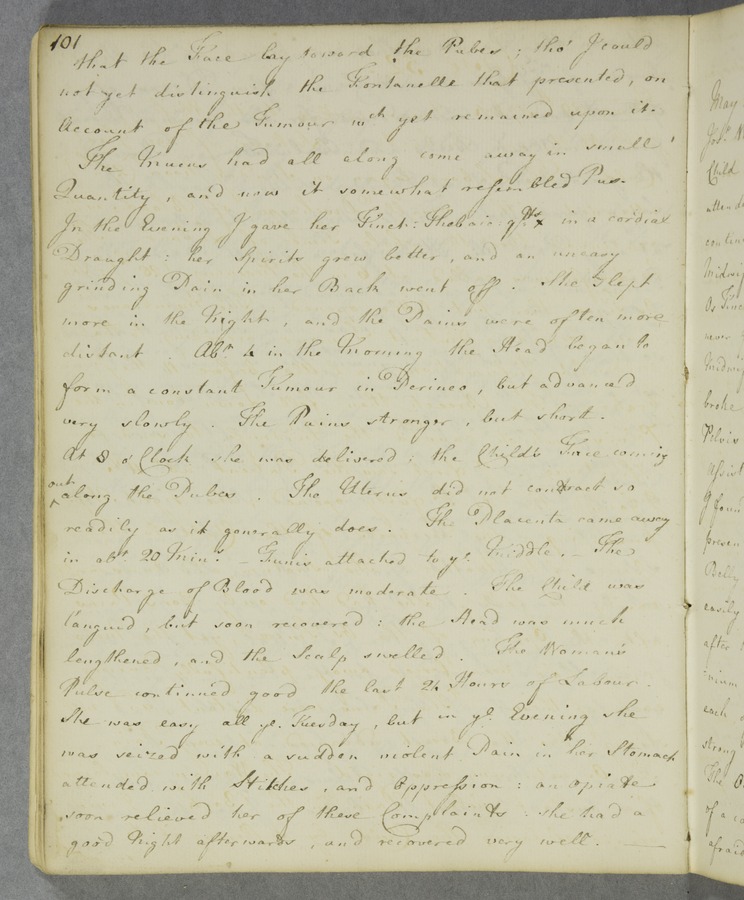 101
that the Face lay toward the Pubes ; tho' I could
not yet distinguish the Fontanelle that presented, on
Account of the Tumour wch yet remained upon it.
The Mucus had all along come away in small
Quantity, and now it somewhat resembled Pus.
In the Evening I gave her Tinct: Thebaic: in a cordial
Draught : her Spirits grew better, and an uneasy
grinding Pain in her Back went off. She slept
more in the Night, and the Pains were often more
distant. Abt. 4 in the Morning the Head began to
form a constant Tumour in Perineo, but advanced
very slowly. The Pains stronger, but short.
At 8 o'Clock she was delivered; the Child's Face coming
out
along the Pubes. The Uterus did not contract so
readily as it generally does. The Placenta came away
in abt. 20 Mins. - Funis attached to ye. Middle. - The
Discharge of Blood was moderate. The Child was
languid, but soon recovered : the Head was much
lengthened, and the Scalp swelled. The Woman's
Pulse continued good the last 24 Hours of Labour.
She was easy all ye. Tuesday, but in ye. Evening she
was seized with a sudden violent Pain in her Stomach
attended with Stitches, and Oppression : an opiate
soon relieved her of these Complaints : she had a
good Night afterwards, and recovered very well.
May
Child
attend
Midwi
never
Midwi
broke
Pelvis
Assist
I foun
presen
Belly
easily
after
each
strong
The
of a co
afraid